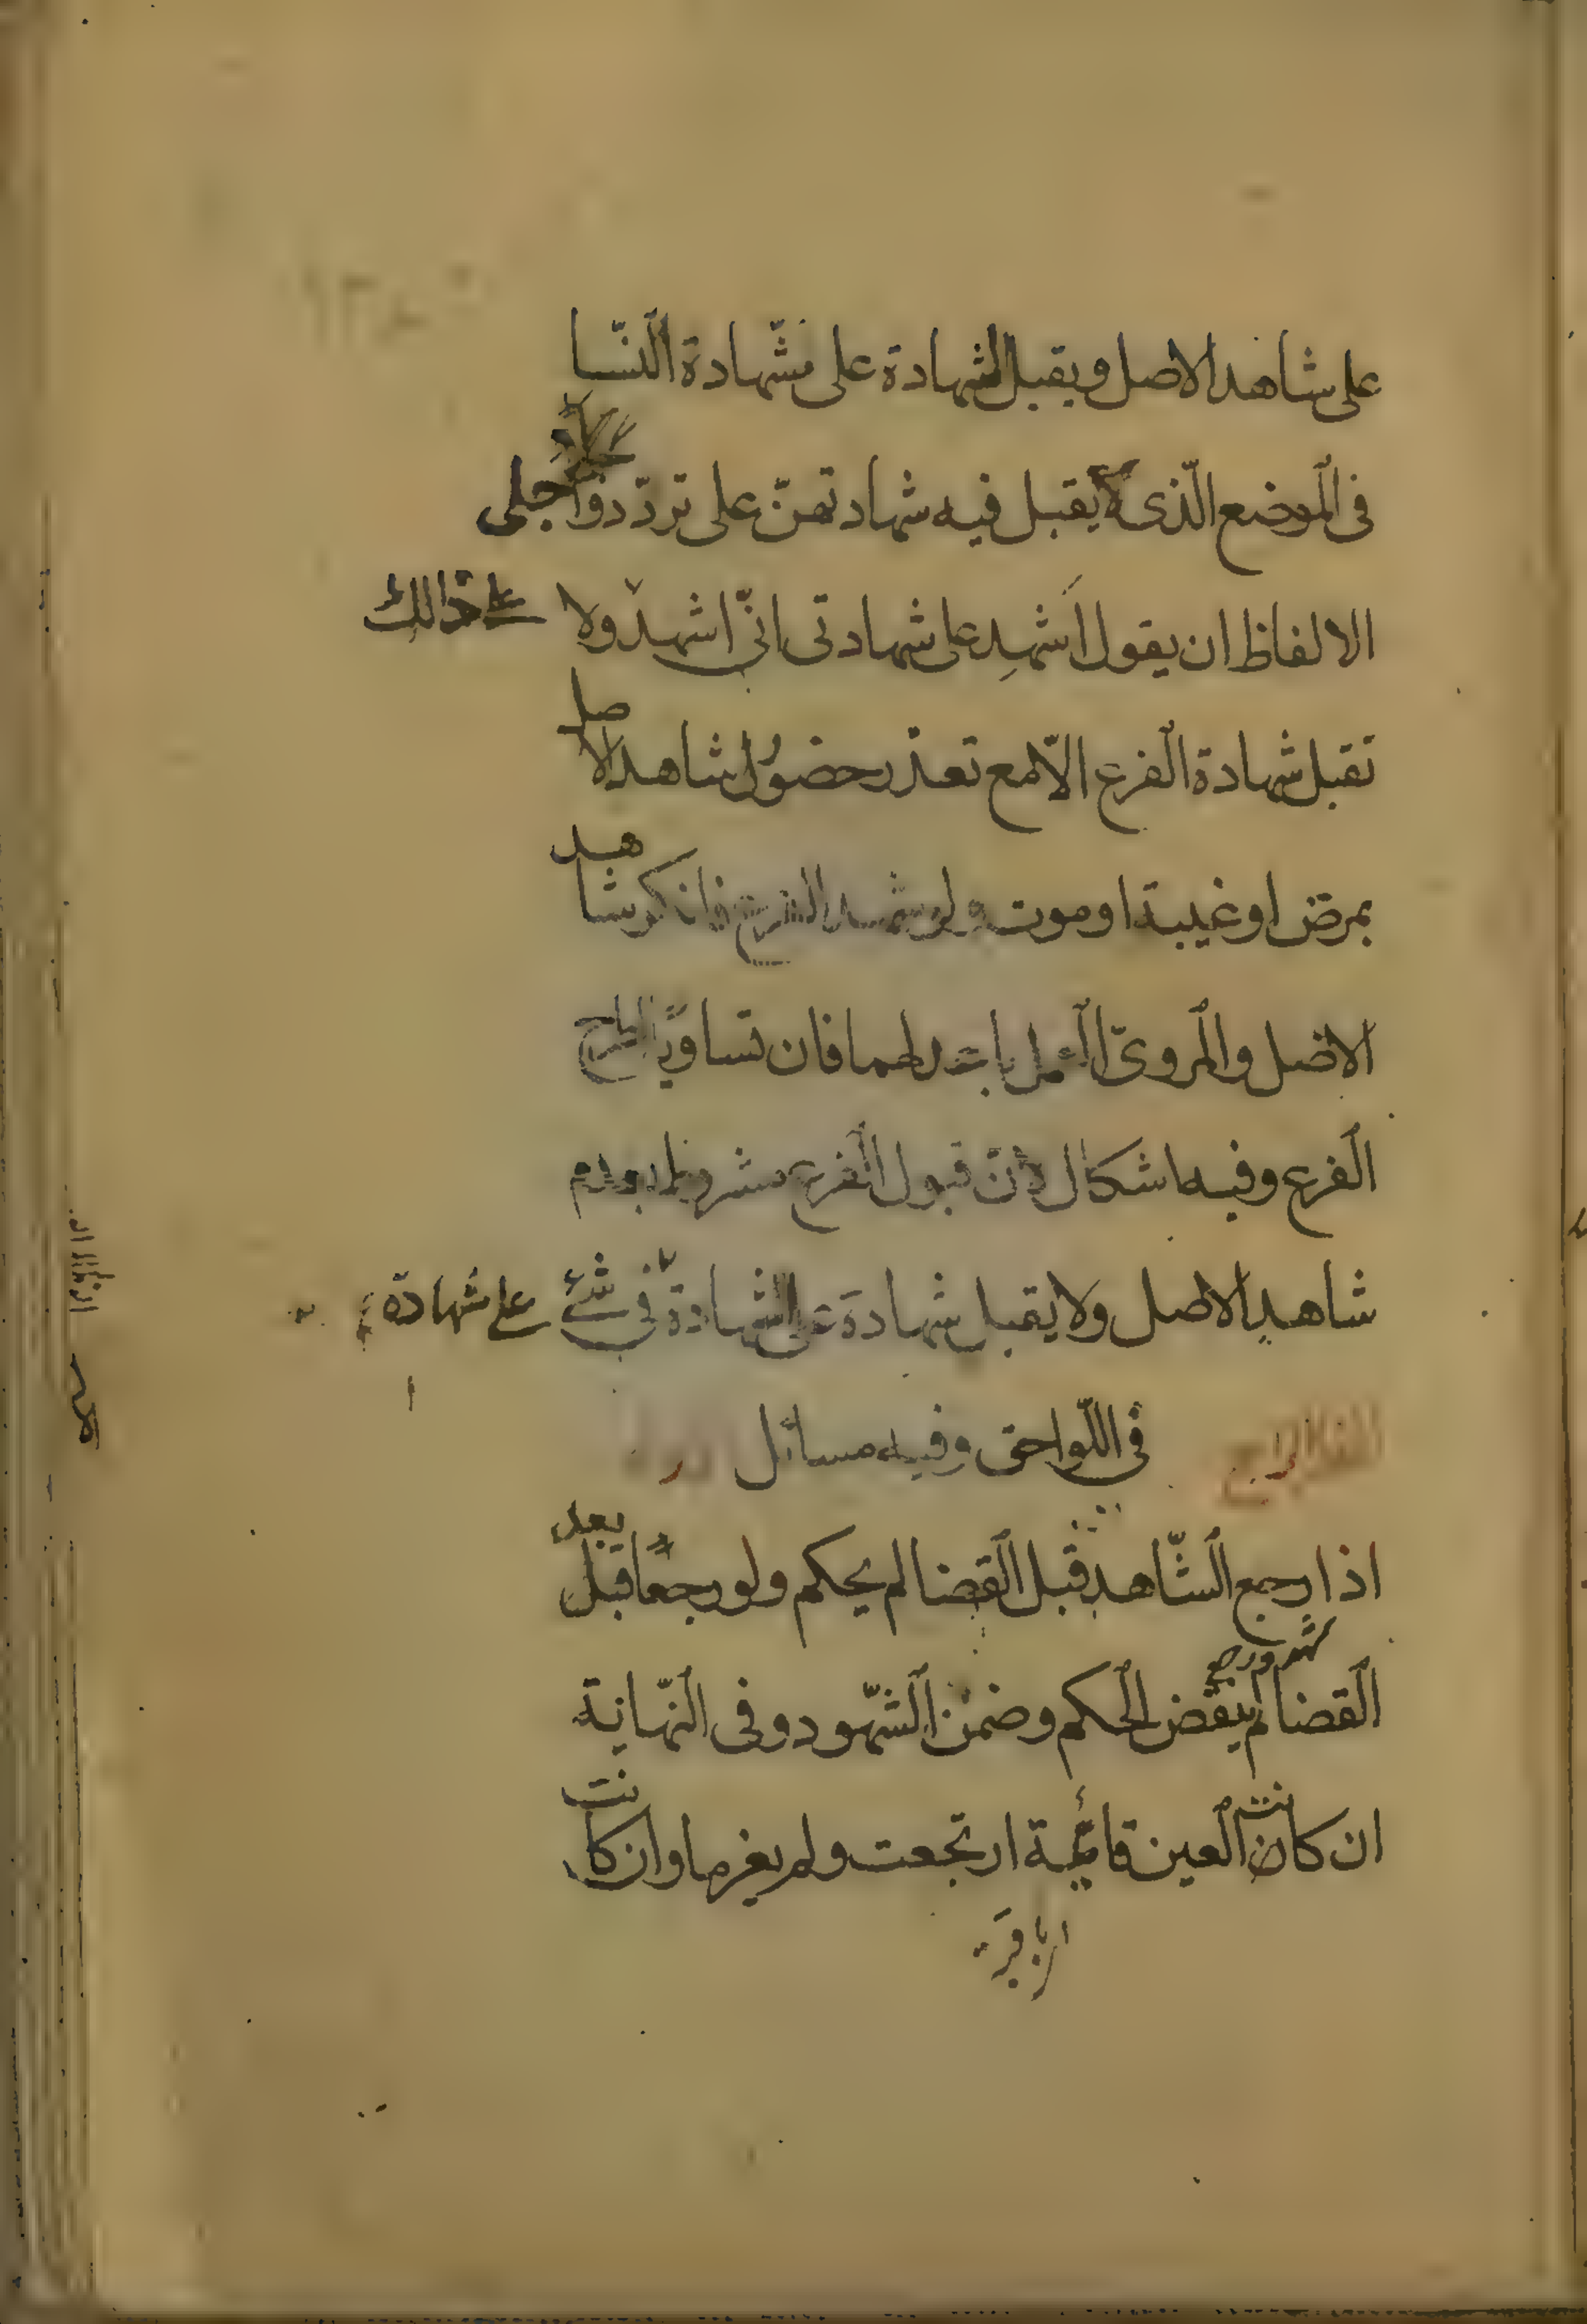 على شاهد الاصل ويقبل الشهادة على شهادة النسا
فى الموضع الذى يقبل فيه شهادتهن على تردد واجلى
الالفاظ ان يقول اشهد على شهادتى انى اشهد ولا
على ذالك
تقبل شهادة الفرع الا مع تعذر حضور شاهد الاصل
بمرض او غيبة او موت ولو شهد الفرع فانكر شاهد
الاصل والمروى العمل باعدلهما فان تساويا اطرح
الفرع وفيه اشكال لان قبول الفرع مشروط بعدم
شاهد الاصل ولا يقبل شهادة على الشهادة فى شئ
على شهادة
الفصل الرابع فى اللواحق وفيه مسائل
اذا رجع الشاهد قبل القضا لم يحكم ولو رجعا قبل
بعد
القضا لم ينقض الحكم وضمن الشهود وفى النهاية
ان كانت العين قائمة ارتجعت ولم يغرما وان كانت